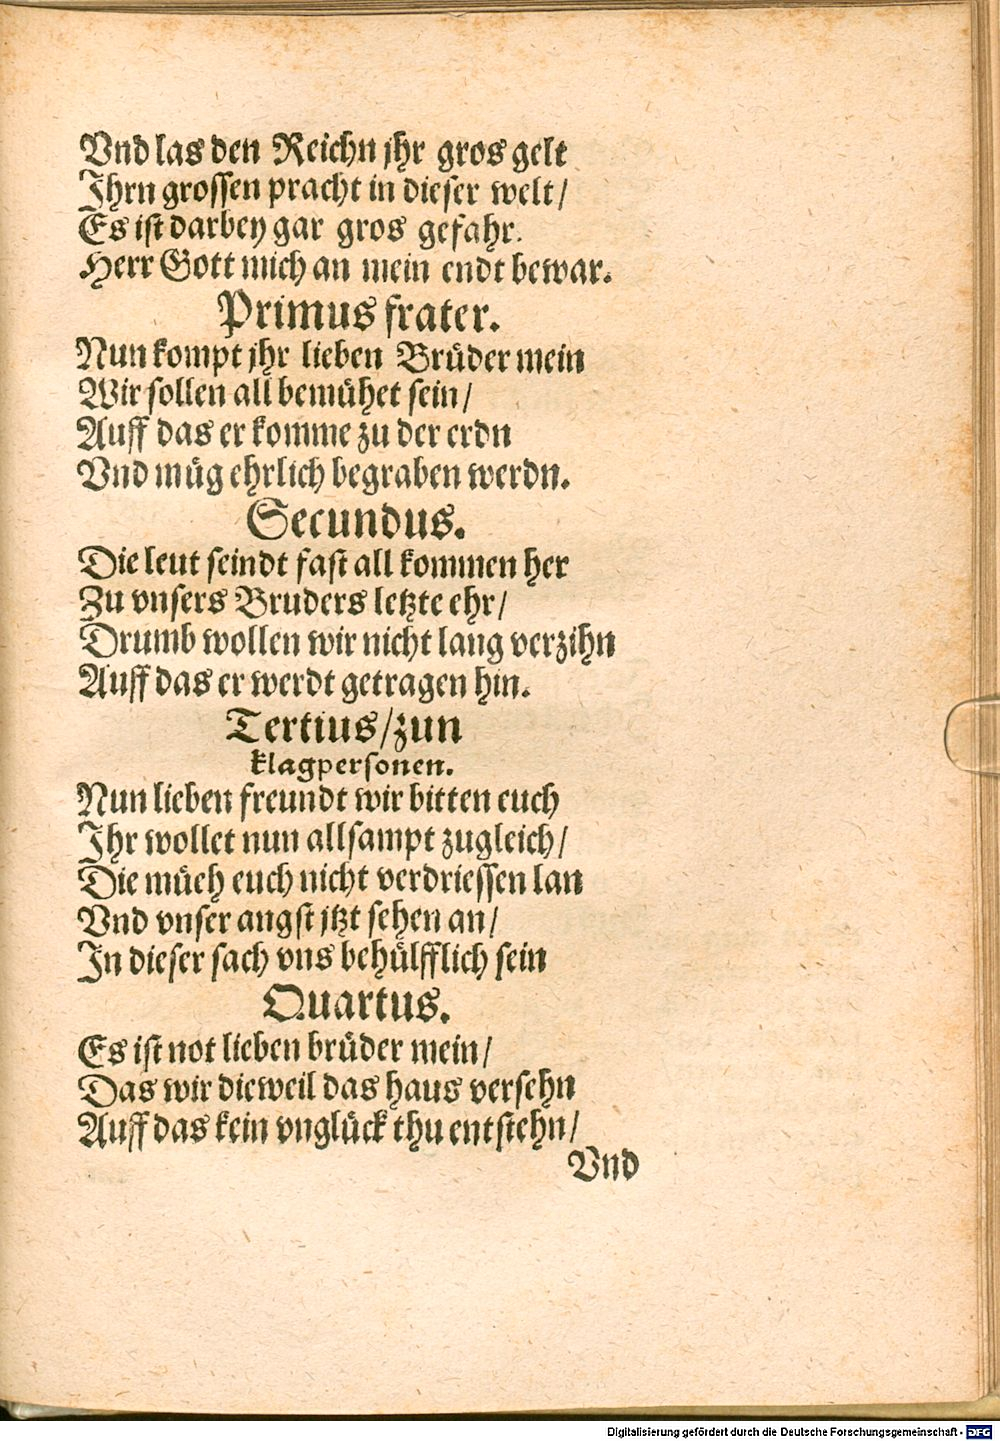 Vnd las den Reichn jhr gros gelt
Ihrn grossen pracht in dieser welt/
Es ist darbey gar gros gefahr.
Herr Gott mich an mein endt bewar.
Primus frater.
Nun kompt jhr lieben Brüder mein
Wir sollen all bemühet sein/
Auff das er komme zu der erdn
Vnd müg ehrlich begraben werdn.
Secundus.
Die leut seindt fast all kommen her
Zu vnsers Bruders letzte ehr/
Drumb wollen wir nicht lang verzihn
Auff das er werdt getragen hin.
Tertius/zun
klagpersonen.
Nun lieben freundt wir bitten euch
Ihr wollet nun allsampt zugleich/
Die müeh euch nicht verdriessen lan
Vnd vnser angst jtzt sehen an/
In dieser sach vns behülfflich sein
Quartus.
Es ist not lieben brüder mein/
Das wir dieweil das haus versehn
Auff das kein vnglück thu entstehn/
Vnd
Digitalisierung gefördert durch die Deutsche Forschungsgemeinschaft - DFG